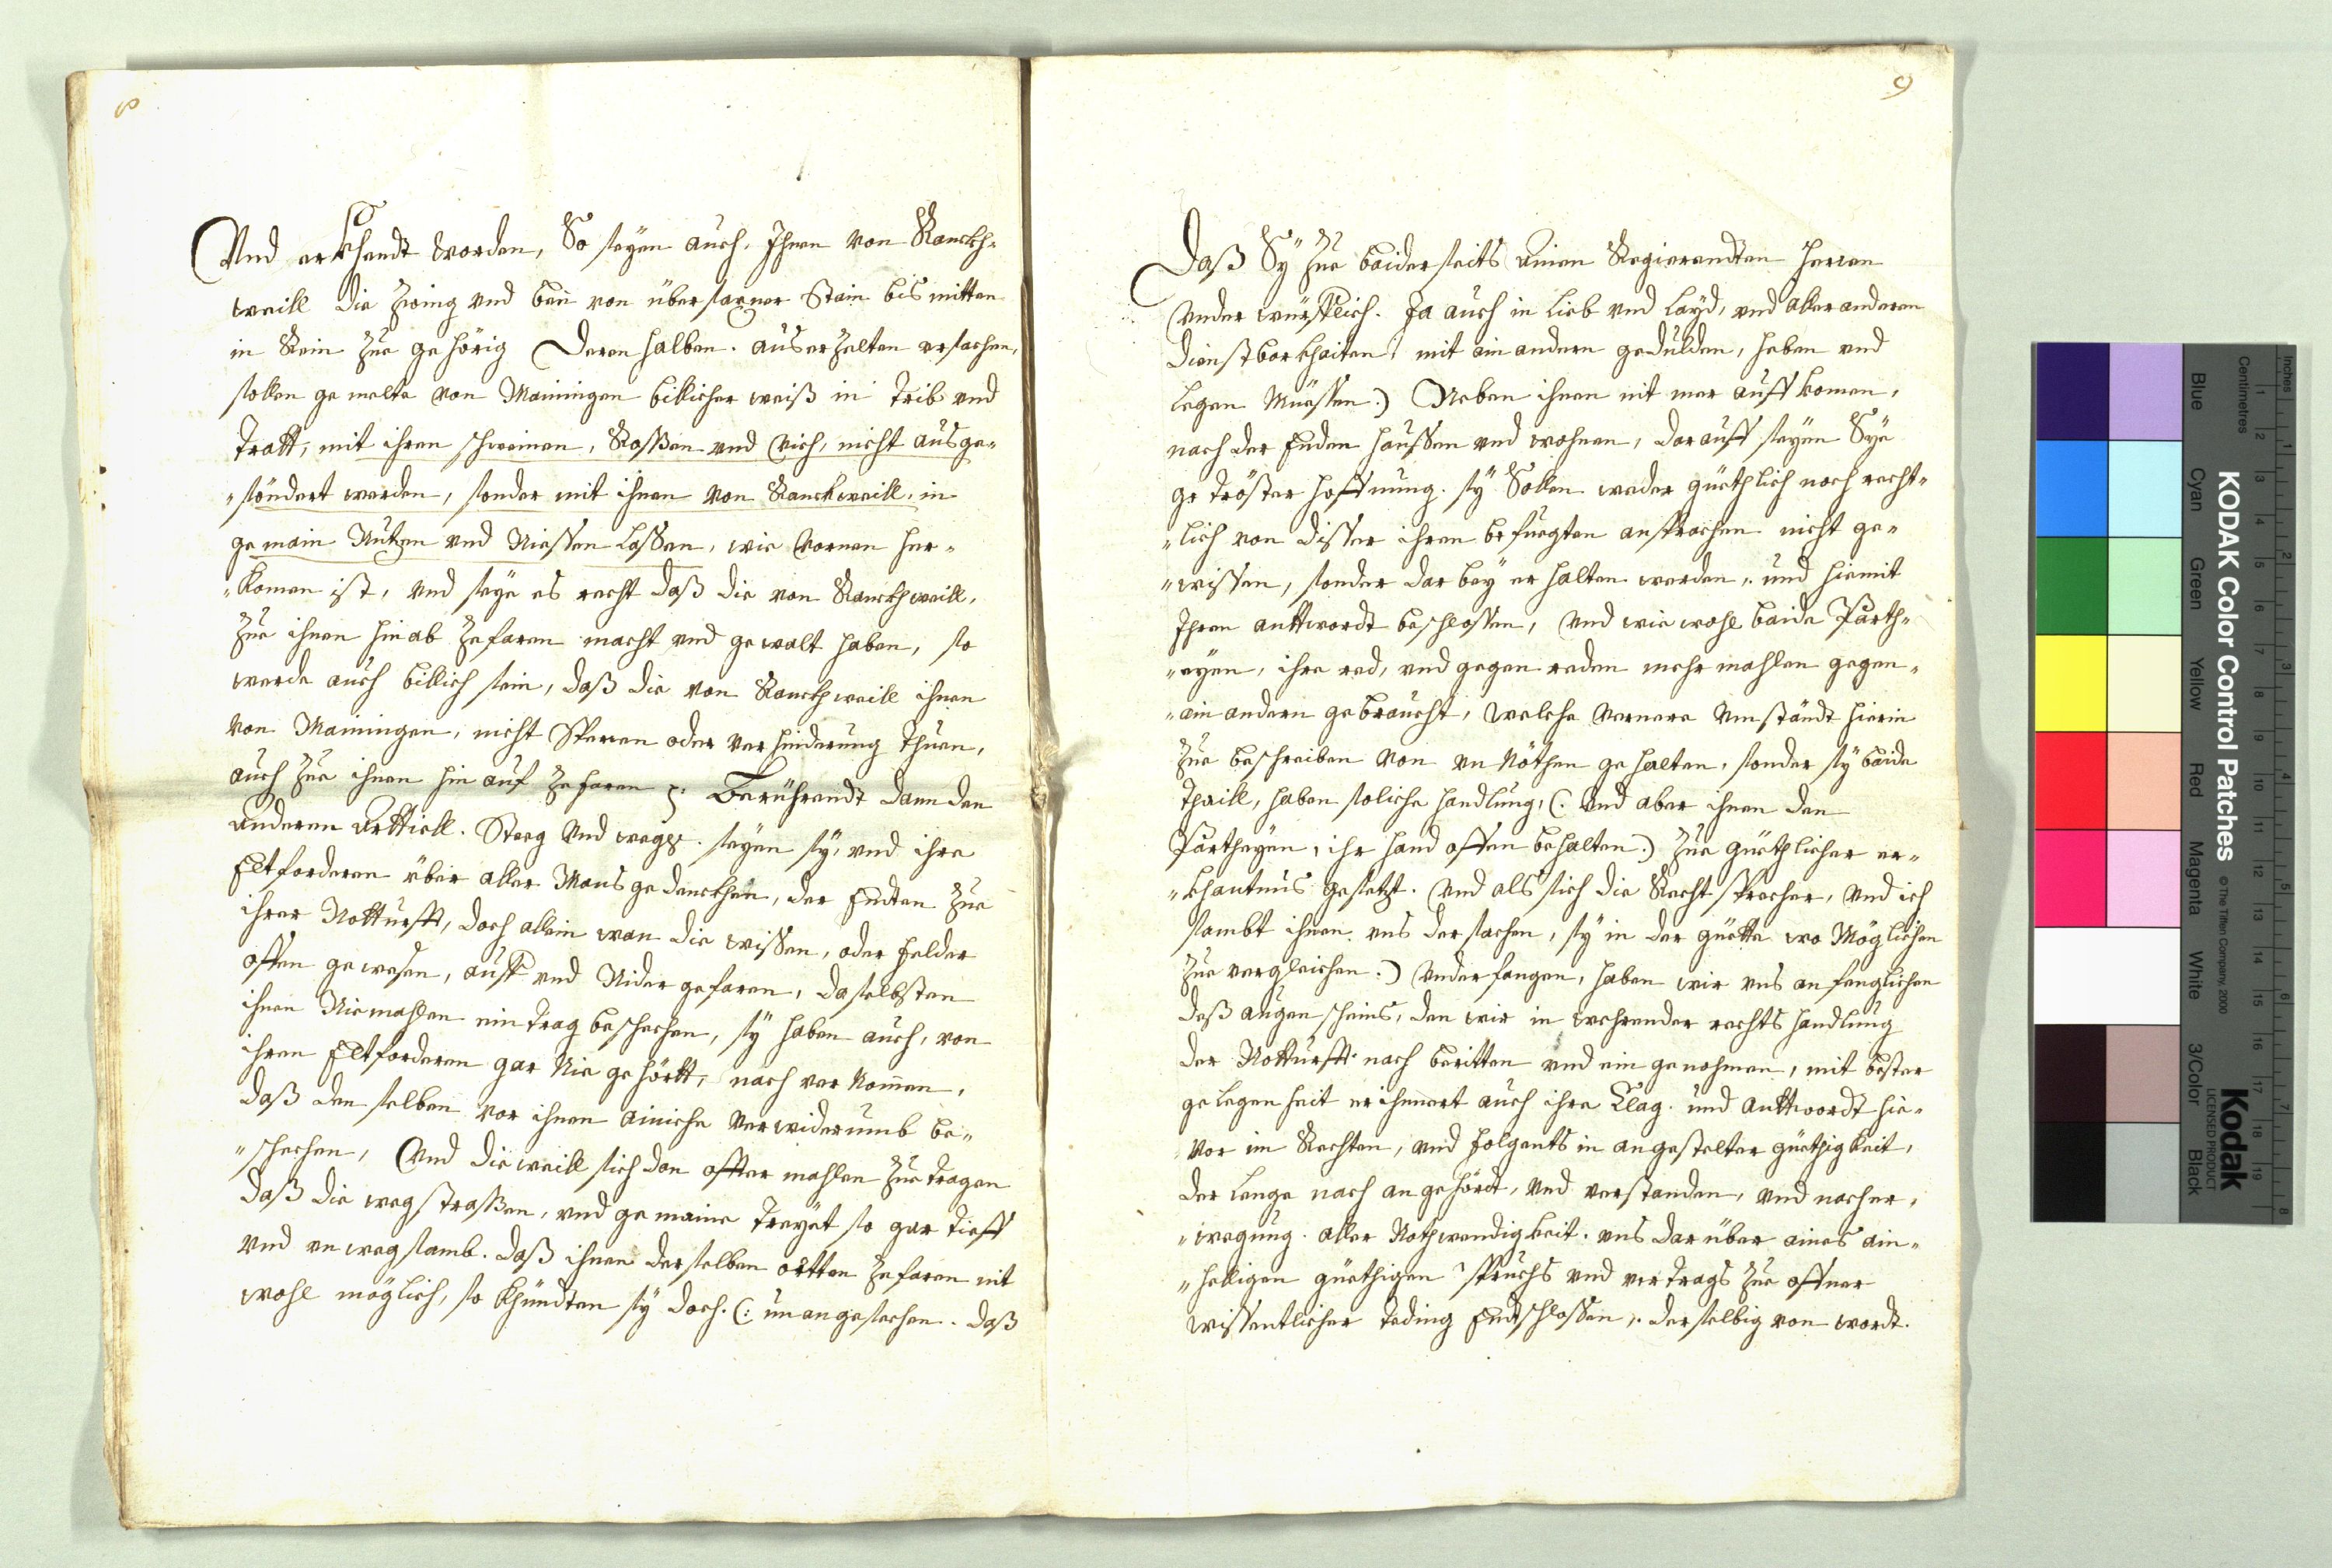 8
Vnd erkhendt worden, So seyen auch, Ihnen von Ranckh-
weill die Zwing vnd ban von übersaxner Stain bis mitten
in Rein zue gehörig Derenhalben. aus erzelten ursachen,
sollen gemelte von Mainingen billicher weiß in Trib vnd
Tratt, mit ihren schweinen, Rossen vnd vich, nicht ausge-
"söndert werden, sonder mit ihnen von Ranckweill, in
gemain Nutzen vnd Niessen lassen, wie vornen her-
"komen ist, vnd seye es recht daß die von Ranckhweill,
Zue ihnen hinab zefaren macht vnd gewalt haben, so
werde auch billich sein, daß die von Ranckhweill ihnen
von Mainingen, nicht Speren oder verhinderung thuen,
auch zue ihnen hin auf zefaren Berührendt dann den
anderen Arttickl. Steeg vnd weege. seyen sy, vnd ihre
Eltforderen über aller Mans gedenckhen, der Endten zue
ihrer Notturfft, doch allein wan die wissen, oder felder
offen gewesen, auff vnd Nider gefaren, daselbsten
ihnen Niemahlen eintrag beschechen, sy haben auch, von
ihren Eltforderen gar Nie gehörtt, noch vernomen,
daß denselben vor ihnen ainiche verwiderumb be-
"schechen, Vnd dieweill sich dan offtermahlen zuetragen
daß die wegstrassen, vnd gemaine Treyet so gar tieff
vnd vnwegsamb. daß ihnen derselben ortten zefaren nit
wohl möglich, so khündten sy doch. (: unangesechen. daß
9
Daß Sy zue baiderseits Ainen Regierendten Herren
vnderwürfflich. Ja auch in lieb vnd layd, vnd aller anderen
dienstbarkhaiten, mit ein andern gedulden, heben vnd
legen Müessen.) Neben ihnen nit mer auffkomen,
nach der Enden haussen vnd wohnen, darauff seyen Sye
getröster hoffnung. sy Sollen weder güethlich noch recht-
"lich von disser ihren befuegten ansprachen nicht ge-
"wissen, sonder darbey erhalten werden, und hiemit
Ihren anttwordt beschlossen, vnd wie wohl baide Parth-
"eyen, ihre red, vnd gegen reden mehrmahlen gegen-
"ein andern gebraucht, welche vernere vmständt hierin
Zue beschreiben von vnnöthen gehalten, sonder sy baide
Thaill, haben soliche handlung, (: vnd aber ihnen den
Partheyen, ihr hand offen behalten.) zue güethlicher er-
"khantnus gesetzt. vnd als sich die Rechtsprecher, vnd ich
sambt ihnen vns der sachen, sy in der güette wo Möglichen
Zue vergleichen.) vnderfangen, haben wir vns anfenglichen
deß augenscheins, den wir in wehrender rechtshandlung
der Notturfft nach beritten vnd eingenohmen, mit bester
gelegenheit erihnnert auch ihre Clag. und anttwordt hie-
vor im Rechten, vnd folgents in angestelter güethigkeit,
der lenge nach angehördt, vnd verstanden, vnd nacher-
"wegung. aller Nothwendigkeit. vns darüber aines ain-
"helligen güethigen Spruchs vnd vertrags zue offner
wissentlicher teding Endtschlossen, derselbig von wordt.
KODAK Color Control Patches
© The Tiffen Company, 2000
Kodak
LICENSED PRODUCT
Inches
Centimetres
Blue
Cyan
Green
Yellow
Red
Magenta
White
3/Color
Black